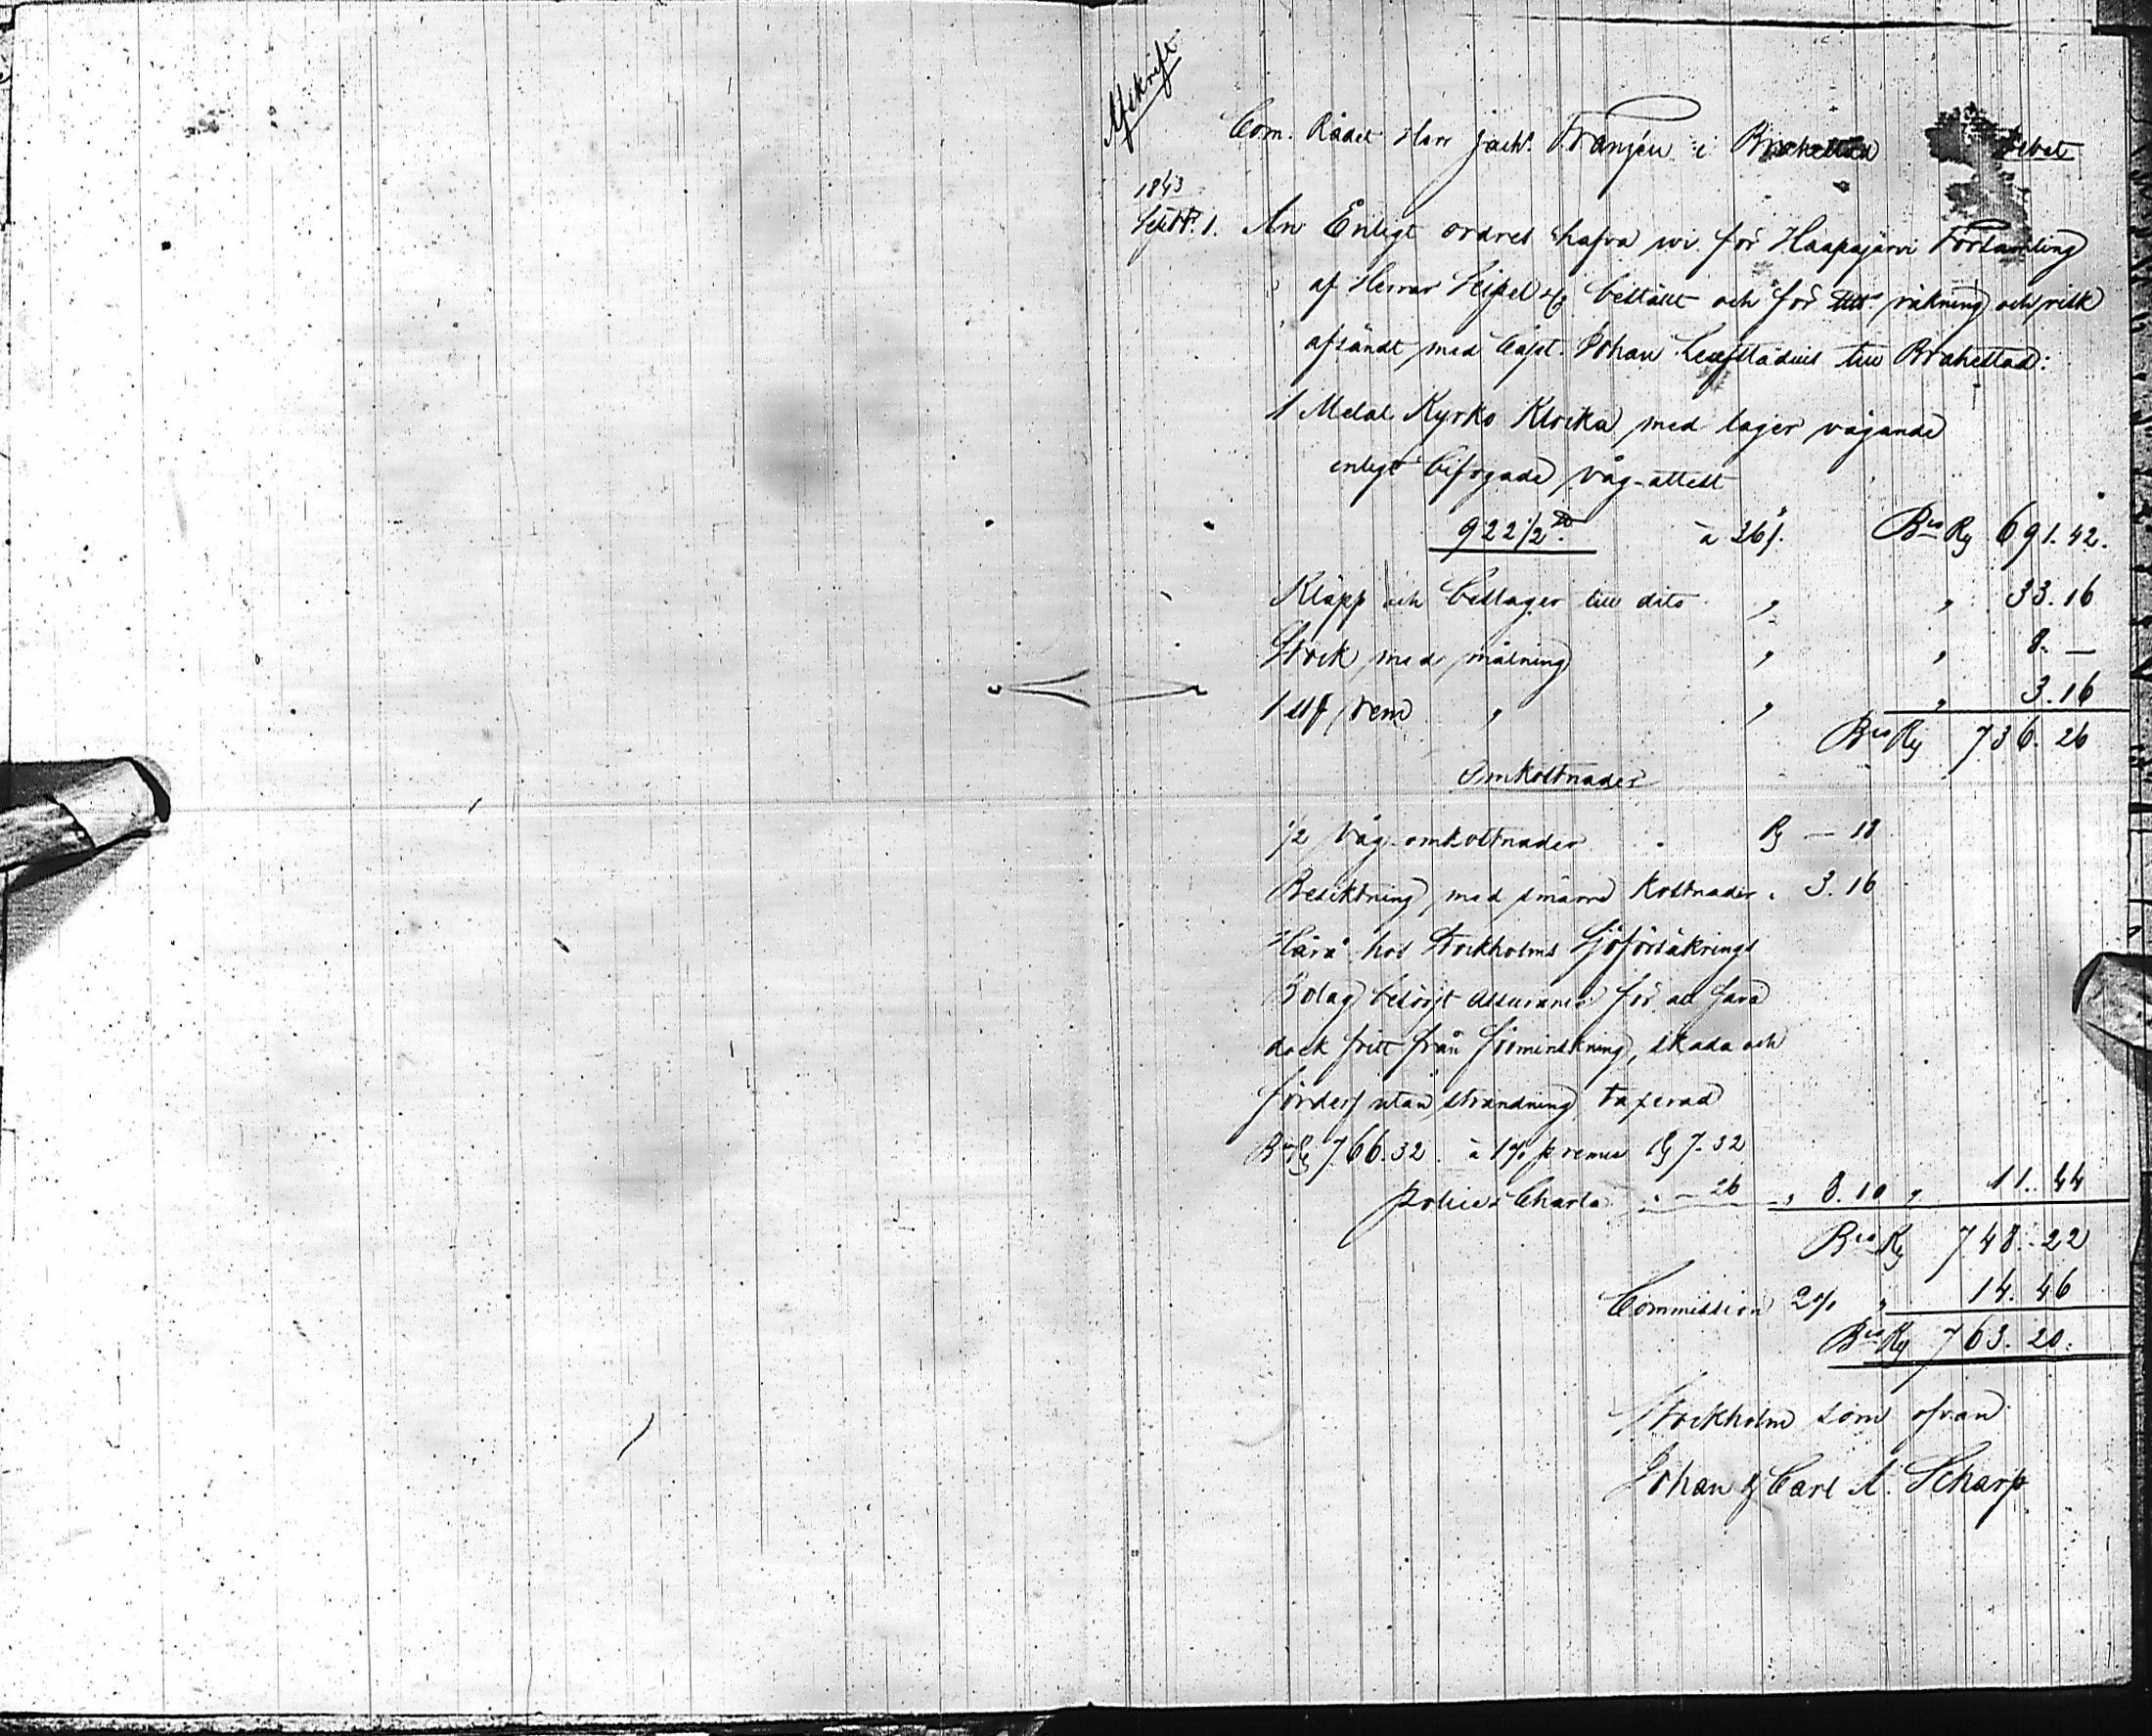 Afskrift
Com. Rådet Herr Zachs Franzén i Brahestad Debet
1843
Septbr. 1. An Enligt ordres hafva wi för Haapajärvi Församling
af Herrar beställt och för räkning och risk
afsändt med Capt. Johan Leufstadius till Brahestad:
1 Metal Kyrko Klocka med lager vägande
enligt bifogade våg-attest
922 1/2 ℔. à 36 s. Bco Rg 691.42.
Kläpp och beslager till dito " " 33.16
Stock med målning " " 8. —
1 st rem " " " 3.16
Bco Rg 736.26
Omkostnader
1/2 Våg-omkostnader . Rg — 18
Besiktning med smärre Kostnader " 3.16
Härå hos Stockholms Sjöförsäkrings
Bolag besörjt assurance för all fara
dock fritt från förminskning, skada och
förderf utan strandning taxerad
Bco Rg 766.32. à 1 % premie Rg 7.32
Police & Charta " — 26 " 8.10 " 11.44
Bco Rg 748.22
Commission 2 % " 14.46
Bco Rg 763.20.
Stockholm som ofvan
Johan & Carl A. Scharp